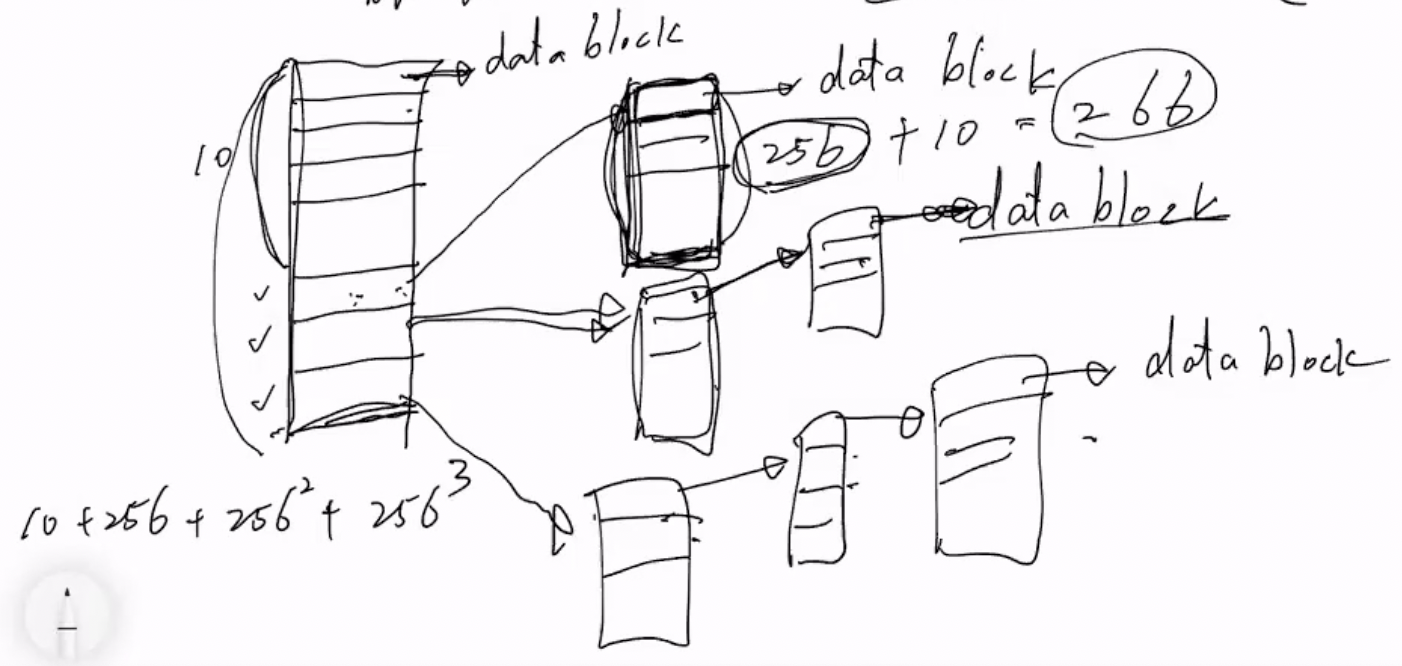 data block
data block
10
256 + 10 = 266
data block
data block
10 + 256 + 256² + 256³